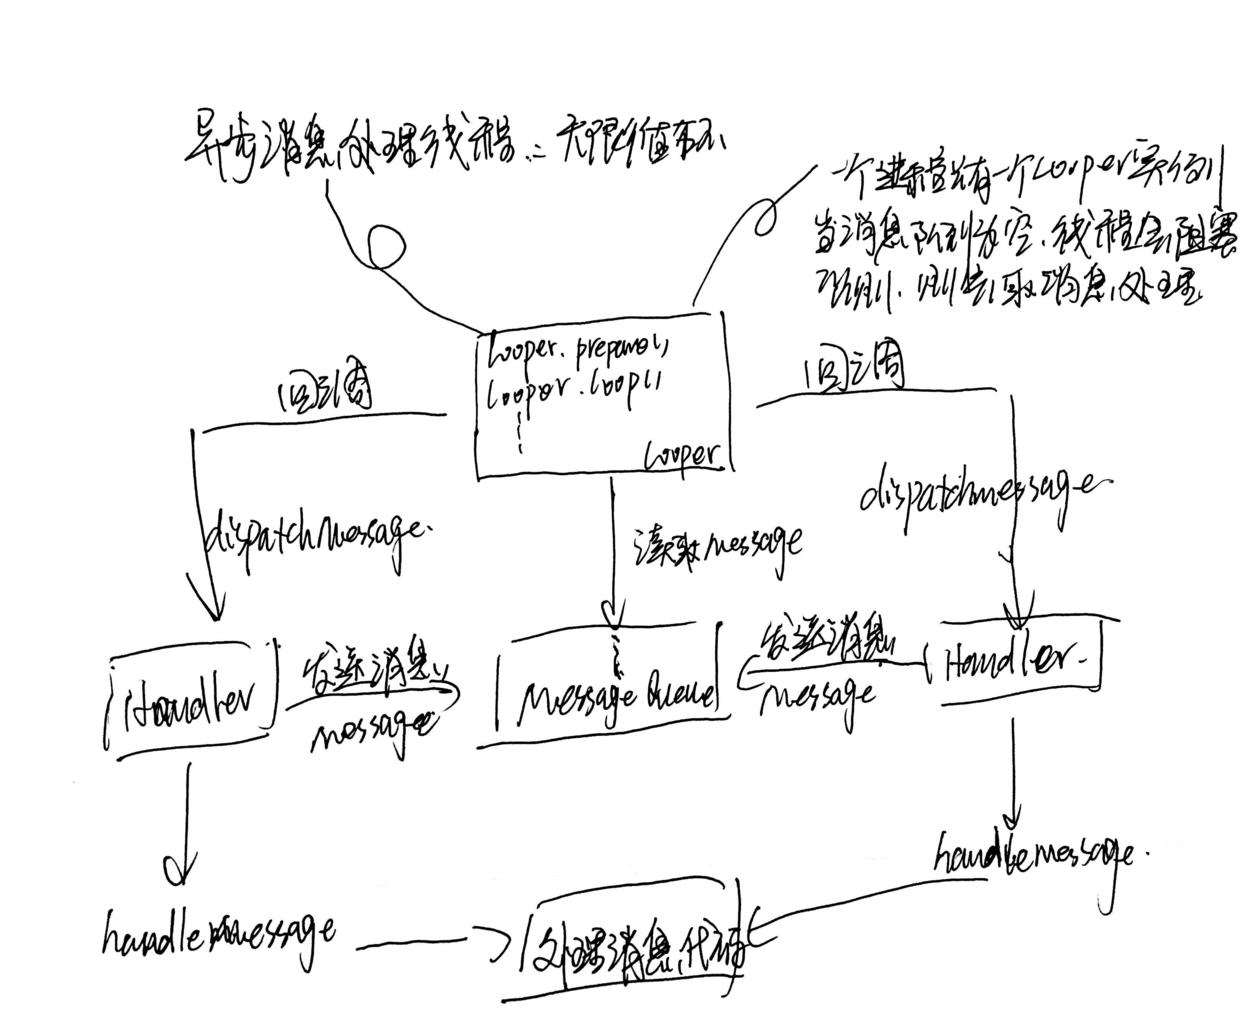 异步消息处理线程：无限循环
一个进程只有一个Looper实例
当消息队列为空，线程会阻塞
否则，则会取消息处理
Looper.prepare()
Looper.loop()
Looper
回调
回调
dispatchMessage.
读取message
dispatchmessage
Handler
发送消息
message
Message Queue
发送消息
message
Handler.
handlemessage
handlemessage.
处理消息代码